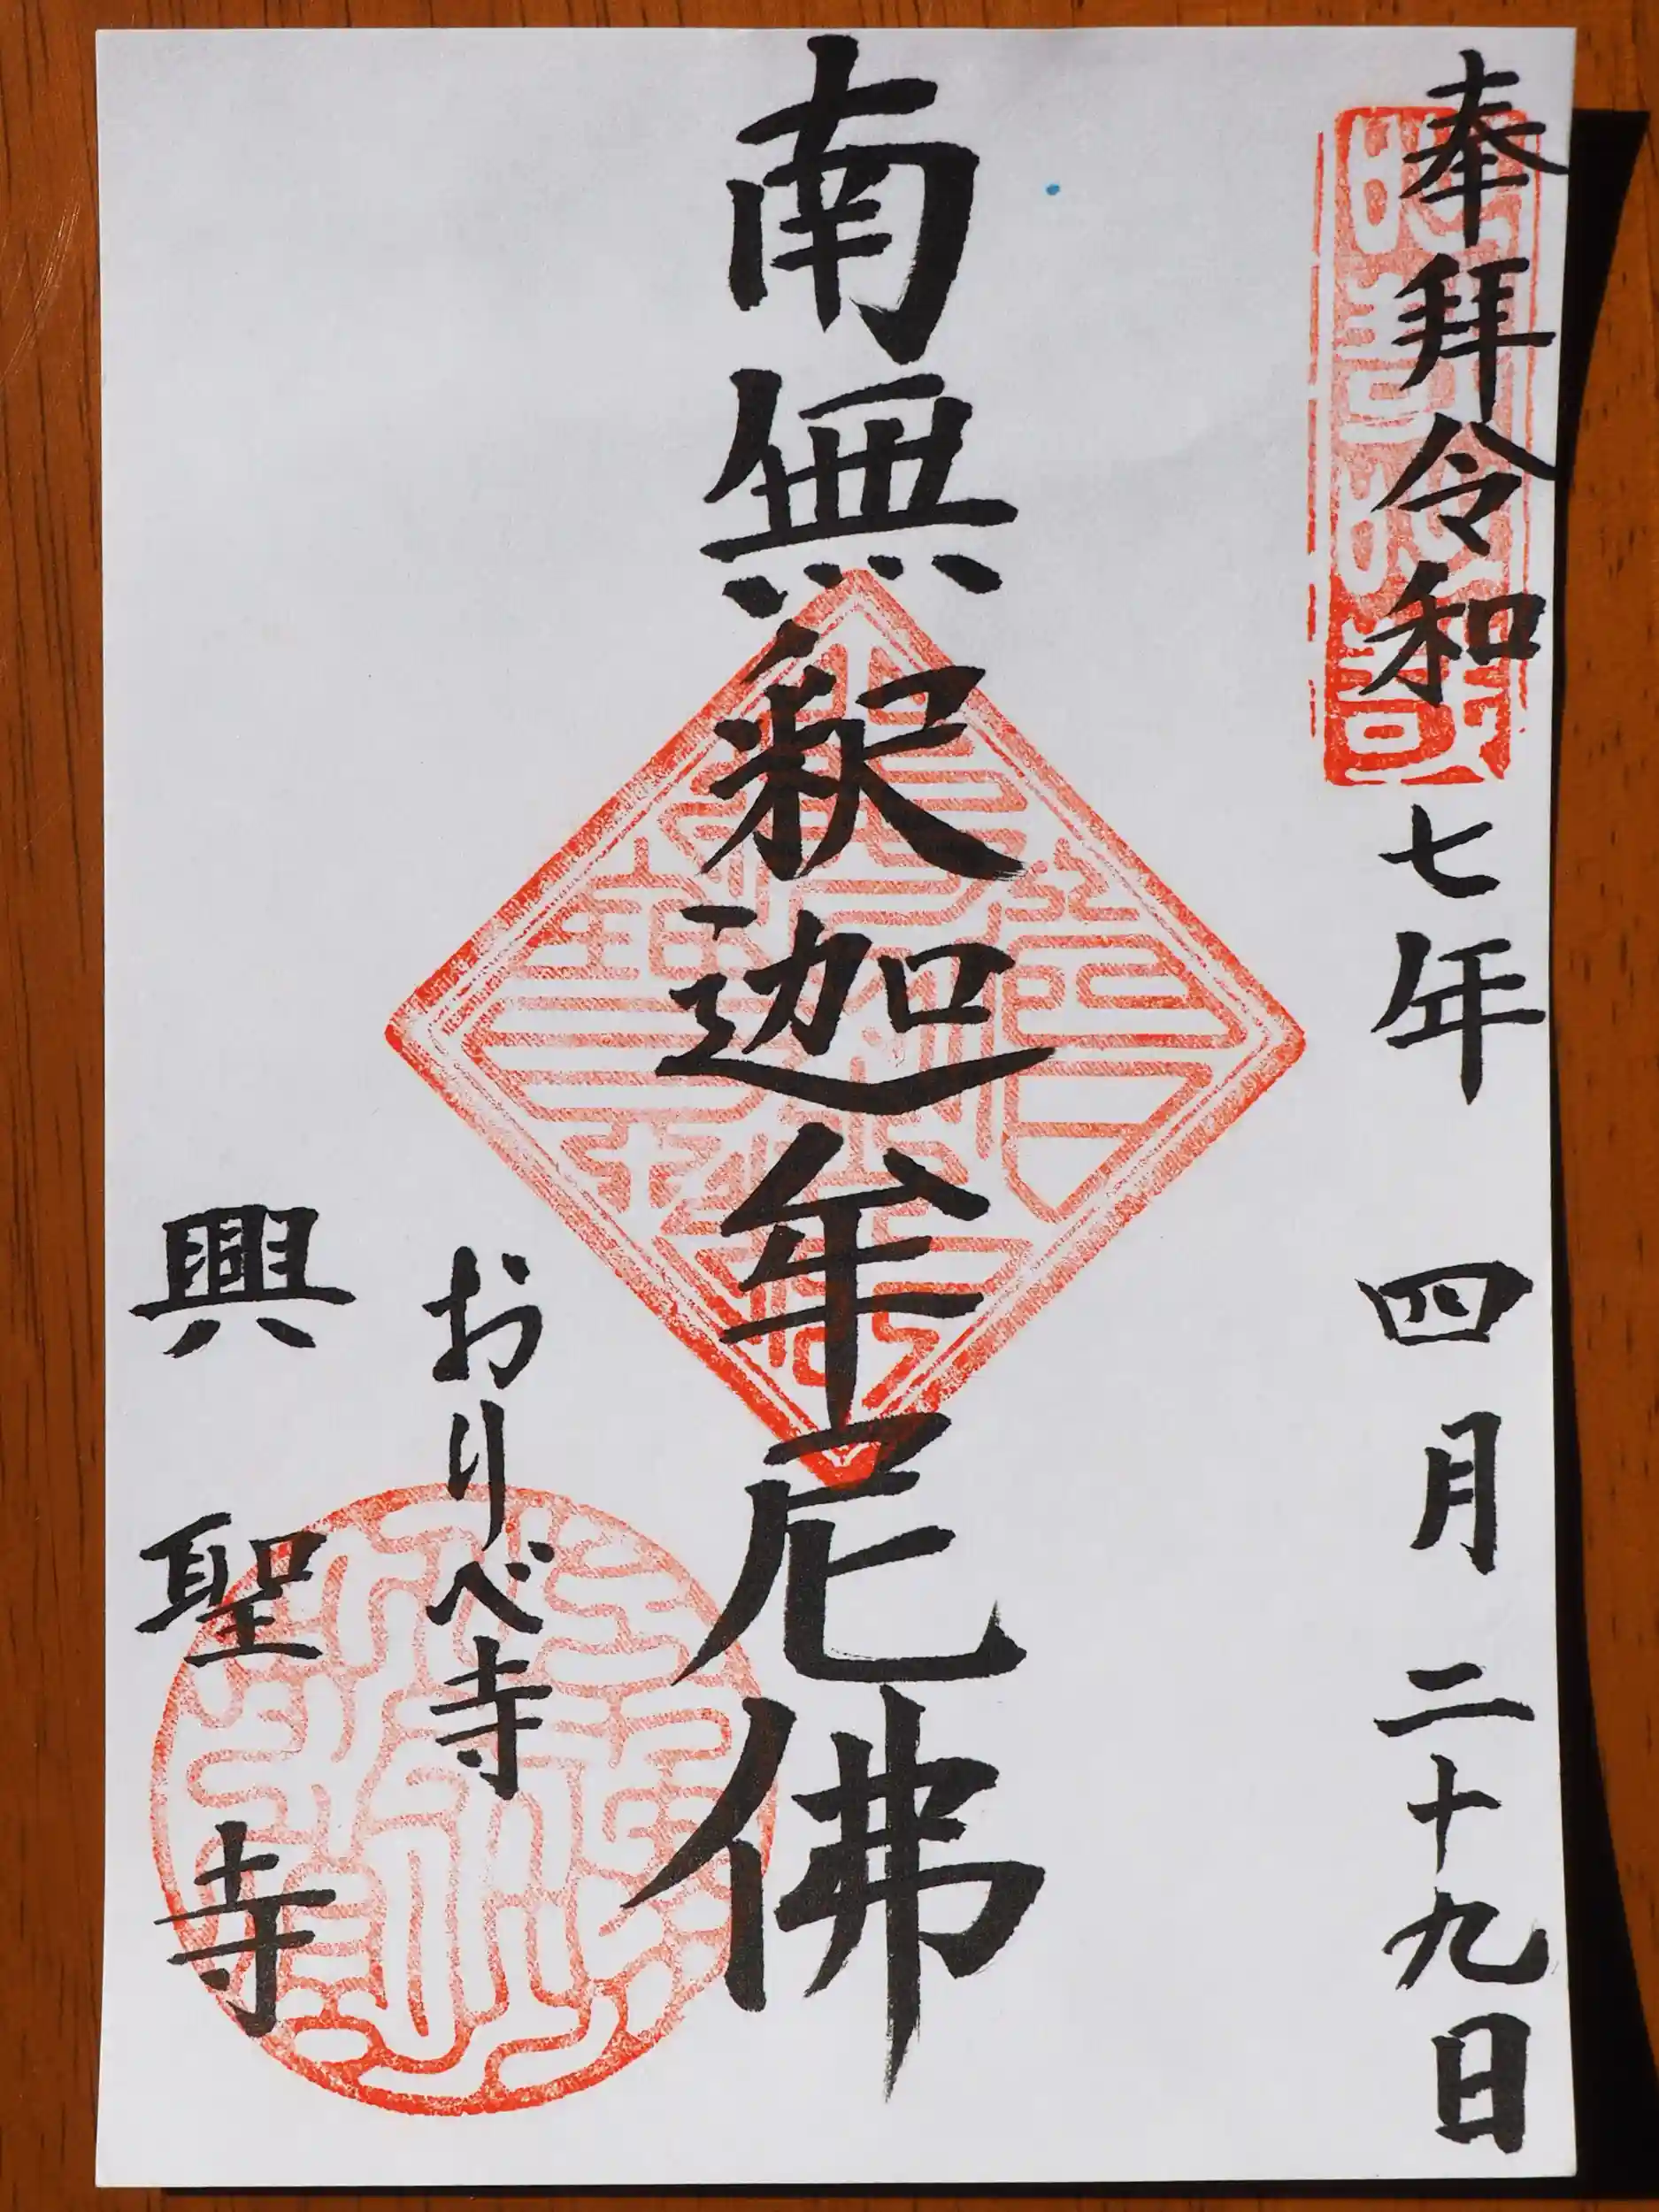 奉拜令和七年 四月二十九日
南無釈迦牟尼佛
おりべ寺
興聖寺